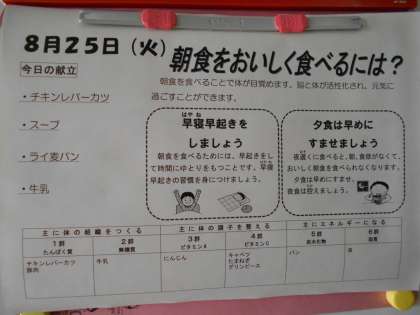 8月25日（火）
朝食をおいしく食べるには？
今日の献立
朝食を食べることで体が目覚めます。脳と体が活性化され、元気に
過ごすことができます。
・チキンレバーカツ
・スープ
・ライ麦パン
・牛乳
はや ね
早寝早起きを
しましょう
朝食を食べるためには、早起きをし
て時間にゆとりをもつことです。早寝
早起きの習慣を身につけましょう。
夕食は早めに
すませましょう
夜遅くに食べると、朝、食欲がなくて、
おいしく朝食を食べられなくなります。
夕食は早めにすませ、
夜食は控えましょう。
主に体の組織をつくる
主に体の調子を整える
主にエネルギーになる
1群
たんぱく質
2群
無機質
3群
ビタミンA
4群
ビタミンC
5群
炭水化物
6群
脂質
チキンレバーカツ
豚肉
牛乳
にんじん
キャベツ
たまねぎ
グリンピース
パン
油